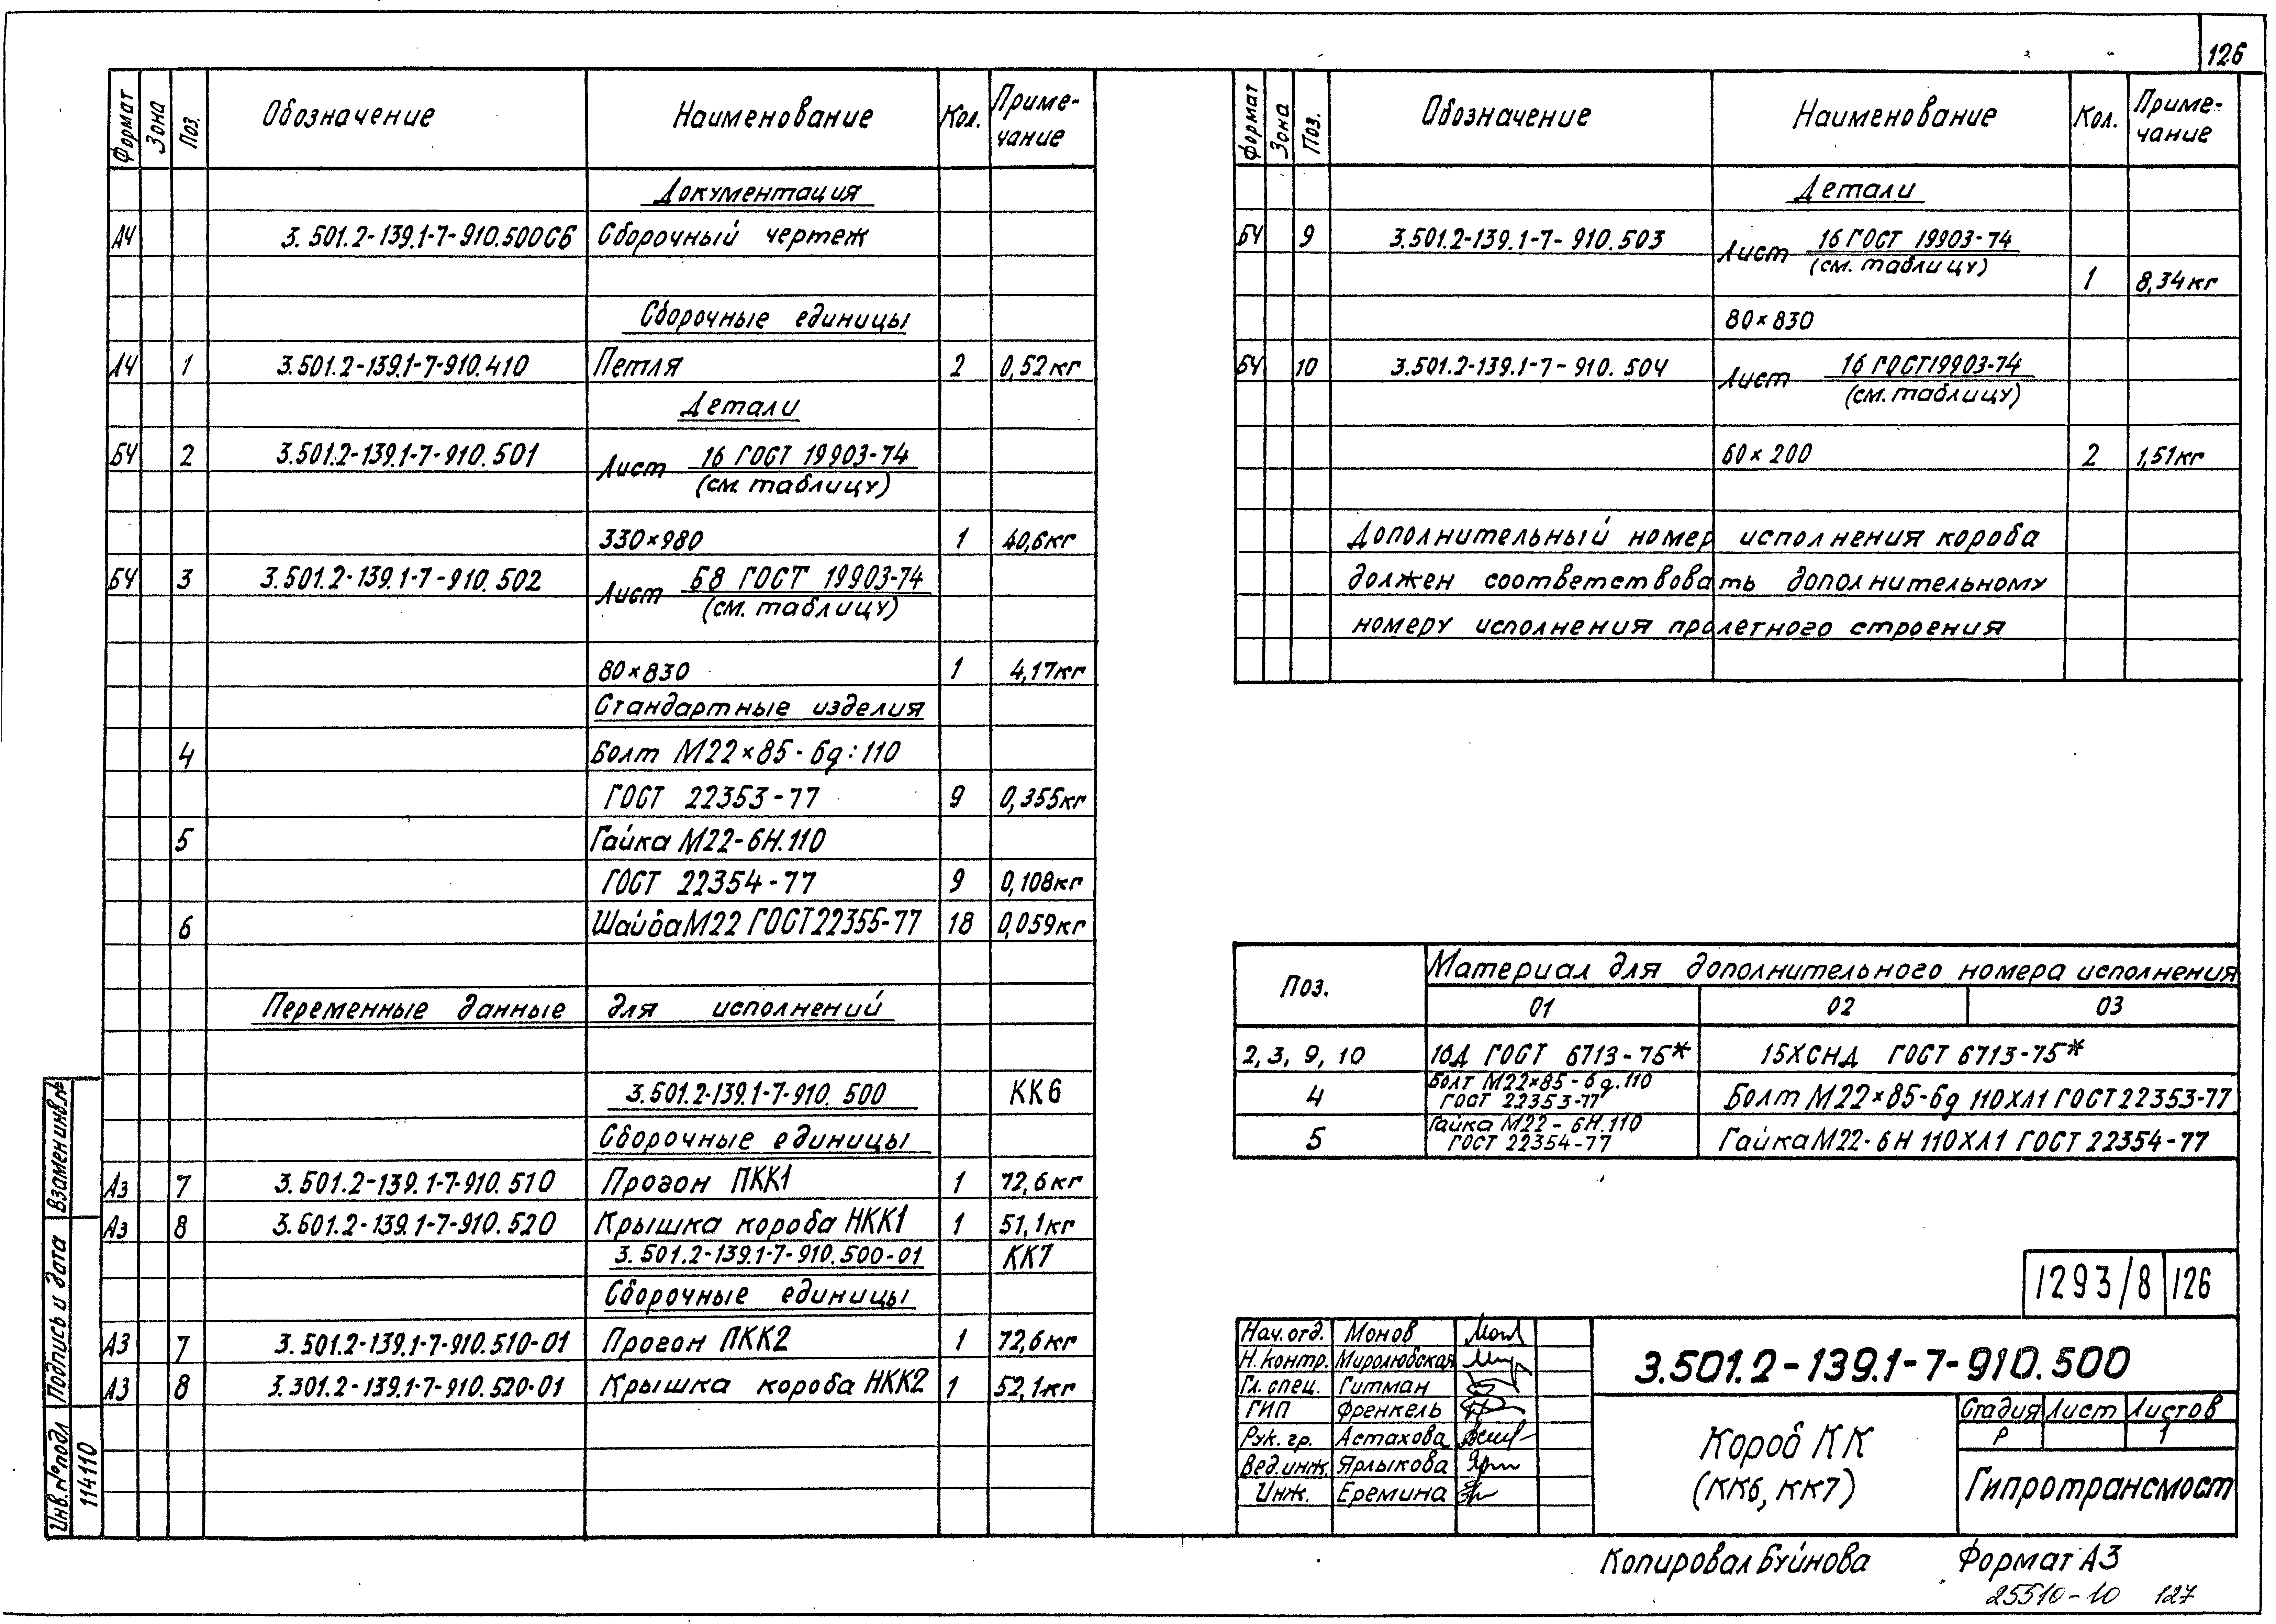 126
Формат Зона Поз. Обозначение Наименование Кол. Приме-
чание
Документация
А4 3.501.2-139.1-7-910.500СБ Сборочный чертеж
Сборочные единицы
А4 1 3.501.2-139.1-7-910.410 Петля 2 0,52кг
Детали
БЧ 2 3.501.2-139.1-7-910.501 Лист 16 ГОСТ 19903-74
(см. таблицу)
330×980 1 40,6кг
БЧ 3 3.501.2-139.1-7-910.502 Лист Б8 ГОСТ 19903-74
(см. таблицу)
80×830 1 4,17кг
Стандартные изделия
4 Болт М22×85-6g.110
ГОСТ 22353-77 9 0,355кг
5 Гайка М22-6Н.110
ГОСТ 22354-77 9 0,108кг
6 Шайба М22 ГОСТ 22355-77 18 0,059кг
Переменные данные для исполнений
3.501.2-139.1-7-910.500 КК6
Сборочные единицы
А3 7 3.501.2-139.1-7-910.510 Прогон ПКК1 1 72,6кг
А3 8 3.601.2-139.1-7-910.520 Крышка короба НКК1 1 51,1кг
3.501.2-139.1-7-910.500-01 КК7
Сборочные единицы
А3 7 3.501.2-139.1-7-910.510-01 Прогон ПКК2 1 72,6кг
А3 8 3.301.2-139.1-7-910.520-01 Крышка короба НКК2 1 52,1кг
Формат Зона Поз. Обозначение Наименование Кол. Приме-
чание
Детали
БЧ 9 3.501.2-139.1-7-910.503 Лист 16 ГОСТ 19903-74
(см. таблицу)
1 8,34кг
80×830
БЧ 10 3.501.2-139.1-7-910.504 Лист 16 ГОСТ 19903-74
(см. таблицу)
60×200 2 1,51кг
Дополнительный номер исполнения короба
должен соответствовать дополнительному
номеру исполнения пролетного строения
Поз. Материал для дополнительного номера исполнения
01 02 03
2, 3, 9, 10 16Д ГОСТ 6713-75* 15ХСНД ГОСТ 6713-75*
4 Болт М22×85-6g.110
ГОСТ 22353-77 Болт М22×85-6g 110ХЛ1 ГОСТ 22353-77
5 Гайка М22-6Н.110
ГОСТ 22354-77 Гайка М22-6Н 110ХЛ1 ГОСТ 22354-77
1293/8 126
Нач. отд. Монов
Н. контр. Миролюбская
Гл. спец. Гитман
ГИП Френкель
Рук. гр. Астахова
Вед. инж. Ярлыкова
Инж. Еремина
3.501.2-139.1-7-910.500
Короб КК
(КК6, КК7)
Стадия Лист Листов
Р 1
Гипротрансмост
Инв. № подл Подпись и дата Взамен инв. №
114110
Копировал Буйнова Формат А3
25510-10 127